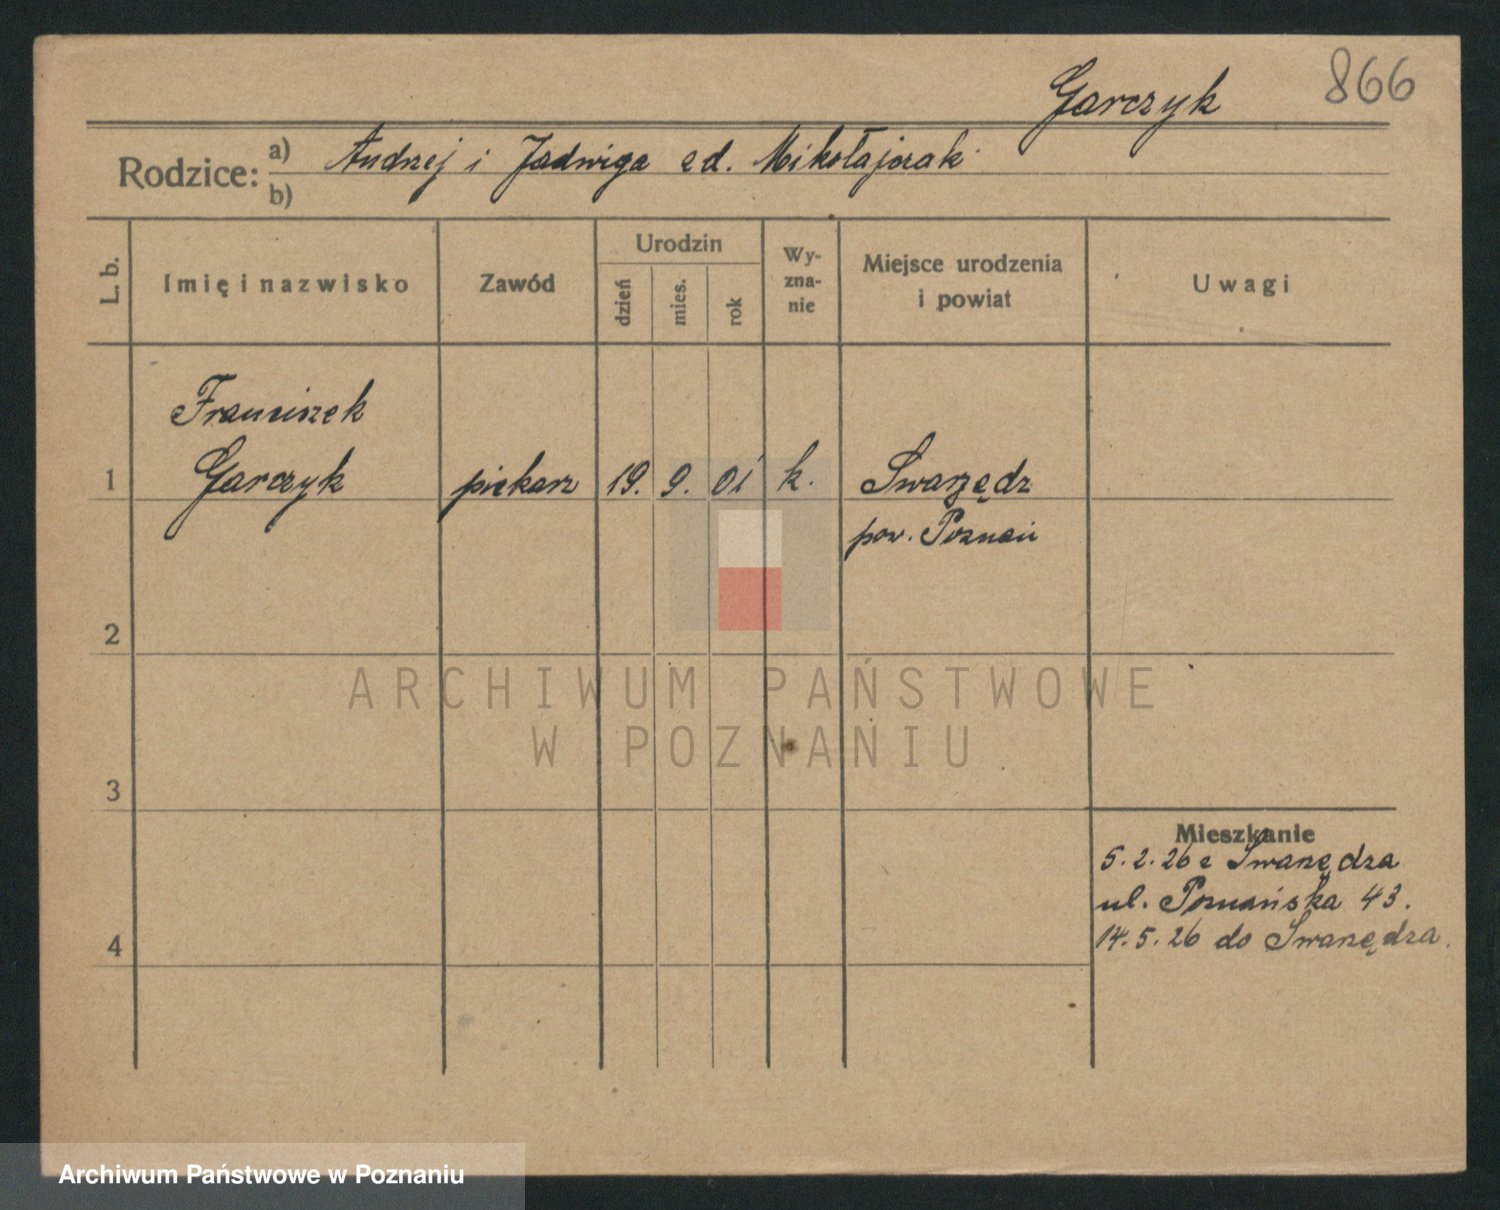 Garczyk 866
Rodzice: a) Andrzej i Jadwiga zd. Mikołajczak
b)
L. b.
Imię i nazwisko
Zawód
Urodzin
dzień
mies.
rok
Wy-
zna-
nie
Miejsce urodzenia
i powiat
Uwagi
Franciszek
1 Garczyk piekarz 19. 9. 01 k. Swarzędz
pow. Poznań
2
ARCHIWUM PAŃSTWOWE
W POZNANIU
3
Mieszkanie
5.2.26 z Swarzędza
ul. Poznańska 43.
4 14.5.26 do Swarzędza.
Archiwum Państwowe w Poznaniu